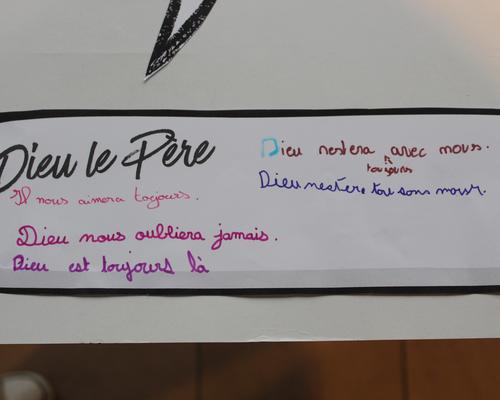 Dieu le Père
Il nous aimera toujours.
Dieu nous oubliera jamais.
Dieu est toujours là
Dieu restera avec nous.
toujours
Dieu restera